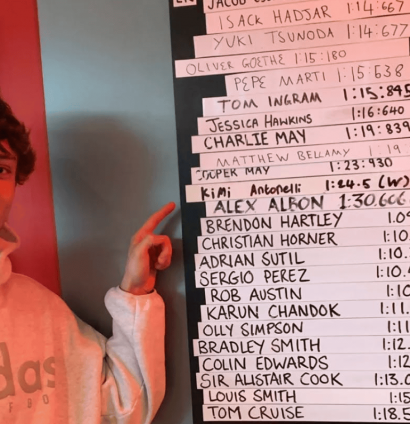 ISACK HADJAR 1:14:667
YUKI TSUNODA 1:14:677
OLIVER GOETHE 1:15:180
PEPE MARTI 1:15:638
TOM INGRAM 1:15:845
JESSICA HAWKINS 1:16:640
CHARLIE MAY 1:19:839
MATTHEW BELLAMY 1:19
COOPER MAY 1:23:930
KiMi Antonelli 1:24.5 (W)
ALEX ALBON 1:30.606
BRENDON HARTLEY 1.0
CHRISTIAN HORNER 1:10.
ADRIAN SUTIL 1:10.
SERGIO PEREZ 1:10.
ROB AUSTIN 1:10
KARUN CHANDOK 1:11.
OLLY SIMPSON 1:11
BRADLEY SMITH 1:12.
COLIN EDWARDS 1:12
SIR ALISTAIR COOK 1:13.0
LOUIS SMITH 1:15
TOM CRUISE 1:18.5
das